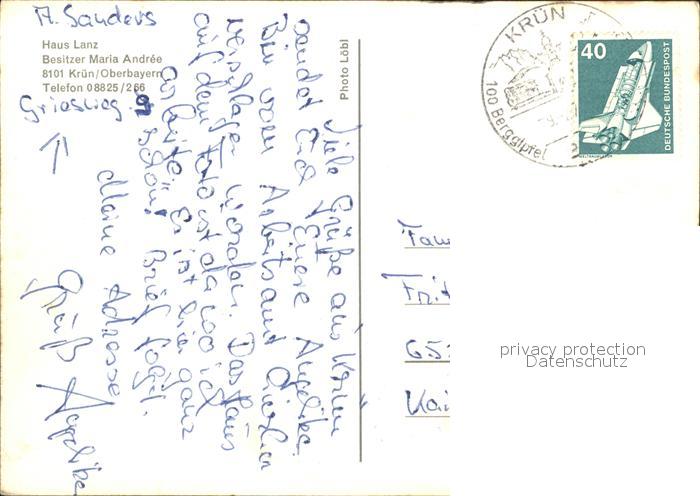 A. Sanders
Haus Lanz
Besitzer Maria Andrée
8101 Krün/Oberbayern
Telefon 08825/266
Griesweg 9
Photo Löbl
KRÜN
100 Berggipfel
40
DEUTSCHE BUNDESPOST
WELTRAUMLABOR
Viele Grüße aus
sendet Euch Eure Angelika.
Bin vom Arbeitsamt hierher
verschlagen worden. Das Haus
auf dem Foto ist da wo ich
arbeite. Es ist hier ganz
schön. Brief folgt.
Meine Adresse
Gruß Angelika
Fam
Frit
65
Kai
privacy protection
Datenschutz